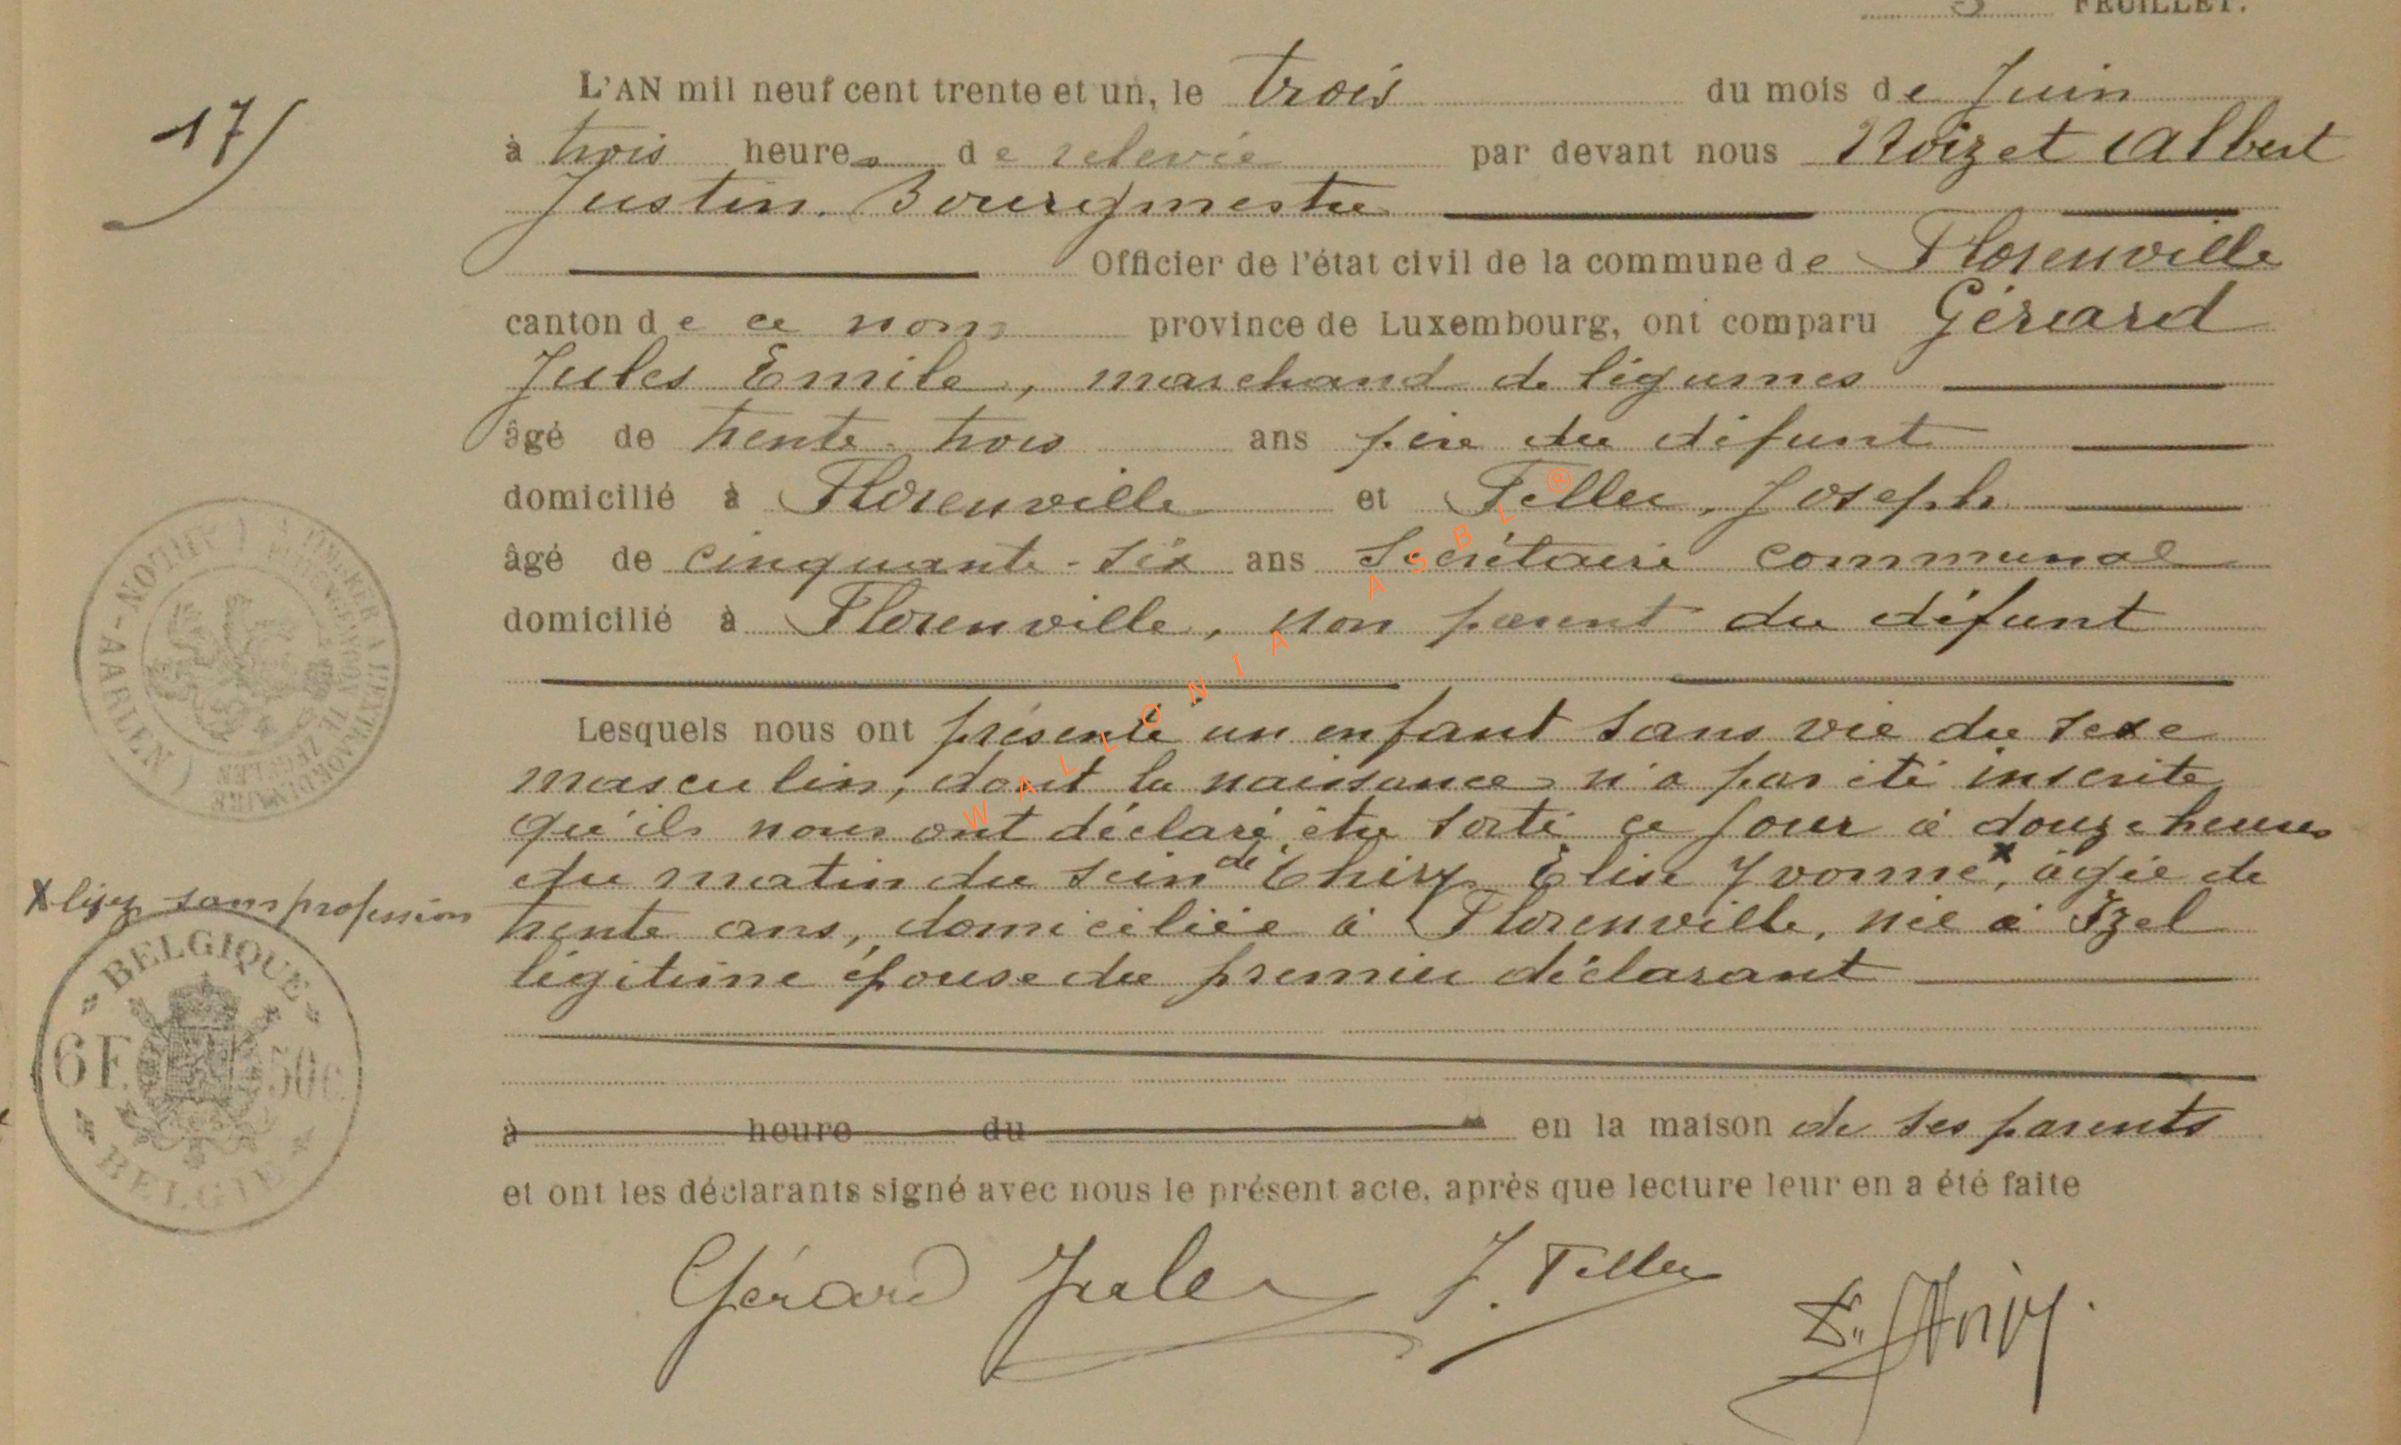 3 FEUILLET.
17/
L'AN mil neuf cent trente et un, le trois du mois de Juin
à trois heures de relevée par devant nous Noizet Albert
Justin. Bourgmestre
Officier de l'état civil de la commune de Florenville
canton de ce nom province de Luxembourg, ont comparu Gérard
Jules Emile, marchand de légumes
âgé de trente-trois ans père du défunt
domicilié à Florenville et Feller, Joseph
âgé de cinquante-six ans Secrétaire communal
domicilié à Florenville, non parent du défunt
Lesquels nous ont présenté un enfant sans vie du sexe
masculin, dont la naissance n'a pas été inscrite
qu'ils nous ont déclaré être sorti ce jour à douze heures
du matin du sein de Thiry Elise Yvonne X, âgée de
X lisez sans profession
trente ans, domiciliée à Florenville, née à Izel
légitime épouse du premier déclarant
à heure du en la maison de ses parents
et ont les déclarants signé avec nous le présent acte, après que lecture leur en a été faite
Gérard Jules J. Feller
BELGIQUE
6F. 50c.
BELGIE
AARLEN
WALLONIA ASBL ®